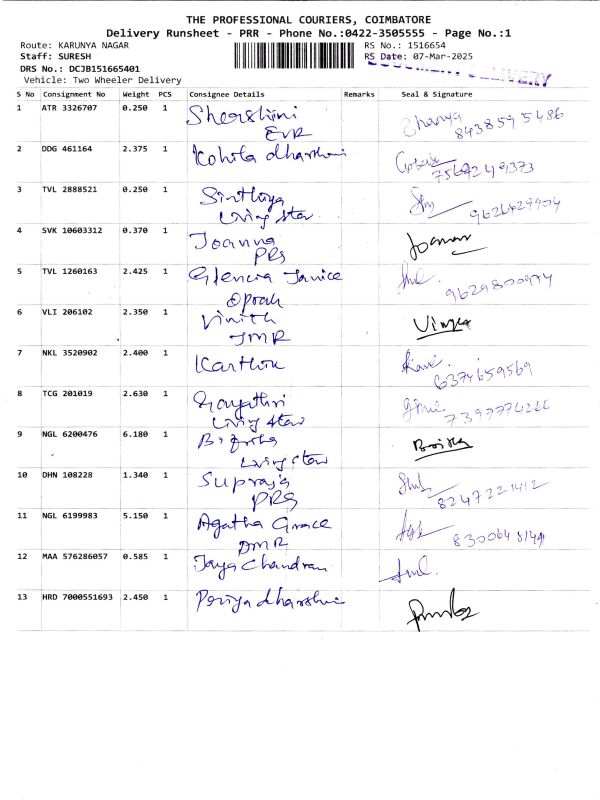 THE PROFESSIONAL COURIERS, COIMBATORE
Delivery Runsheet - PRR - Phone No.:0422-3505555 - Page No.:1
Route: KARUNYA NAGAR
RS No.: 1516654
Staff: SURESH
RS Date: 07-Mar-2025
DRS No.: DCJB151665401
DELIVERY
Vehicle: Two Wheeler Delivery
S No Consignment No Weight PCS Consignee Details Remarks Seal & Signature
1 ATR 3326707 0.250 1 Shershini
EVR 8438595486
2 DDG 461164 2.375 1 Kohila dharshini
7568249373
3 TVL 2888521 0.250 1 Sinthiya
Living star 9626429904
4 SVK 10603312 0.370 1 Joanna
PRS
5 TVL 1260163 2.425 1 Glencia Janice
Oprah 9629800974
6 VLI 206102 2.350 1 Vinith
JMR
7 NKL 3520902 2.400 1 Karthik
6374659569
8 TCG 201019 2.630 1 Gayathri
Living star 7397774266
9 NGL 6200476 6.180 1
Living star
10 DHN 108228 1.340 1 Supraja
PRS 8247221412
11 NGL 6199983 5.150 1 Agatha Grace
DMR
12 MAA 576286057 0.585 1 Jaya Chandran
13 HRD 7000551693 2.450 1 Periya dharshini